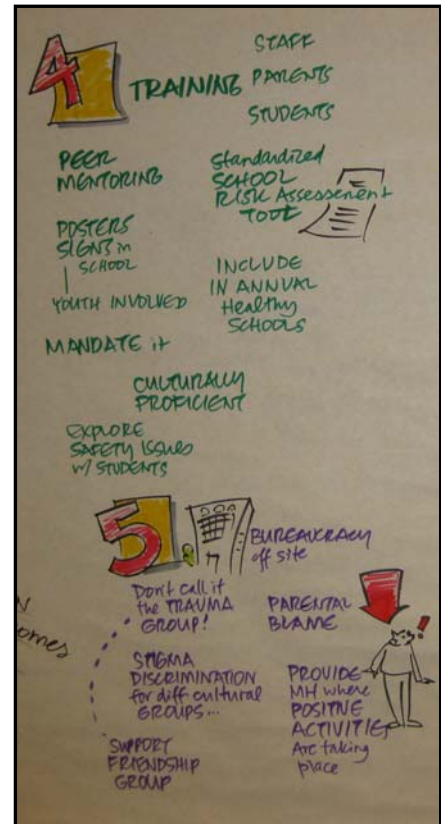 4
TRAINING
STAFF
PARENTS
STUDENTS
PEER
MENTORING
Standardized
SCHOOL
RISK Assessement
TOOL
POSTERS
SIGNS in
SCHOOL
YOUTH INVOLVED
INCLUDE
IN ANNUAL
Healthy
SCHOOLS
MANDATE it
CULTURALLY
PROFICIENT
EXPLORE
SAFETY ISSUES
w/ STUDENTS
5
BUREAUCRACY
off site
Don't call it
the TRAUMA
GROUP!
PARENTAL
BLAME
!
STIGMA
DISCRIMINATION
for diff cultural
GROUPS...
PROVIDE
MH where
POSITIVE
ACTIVITIES
Are taking
place
SUPPORT
FRIENDSHIP
GROUP